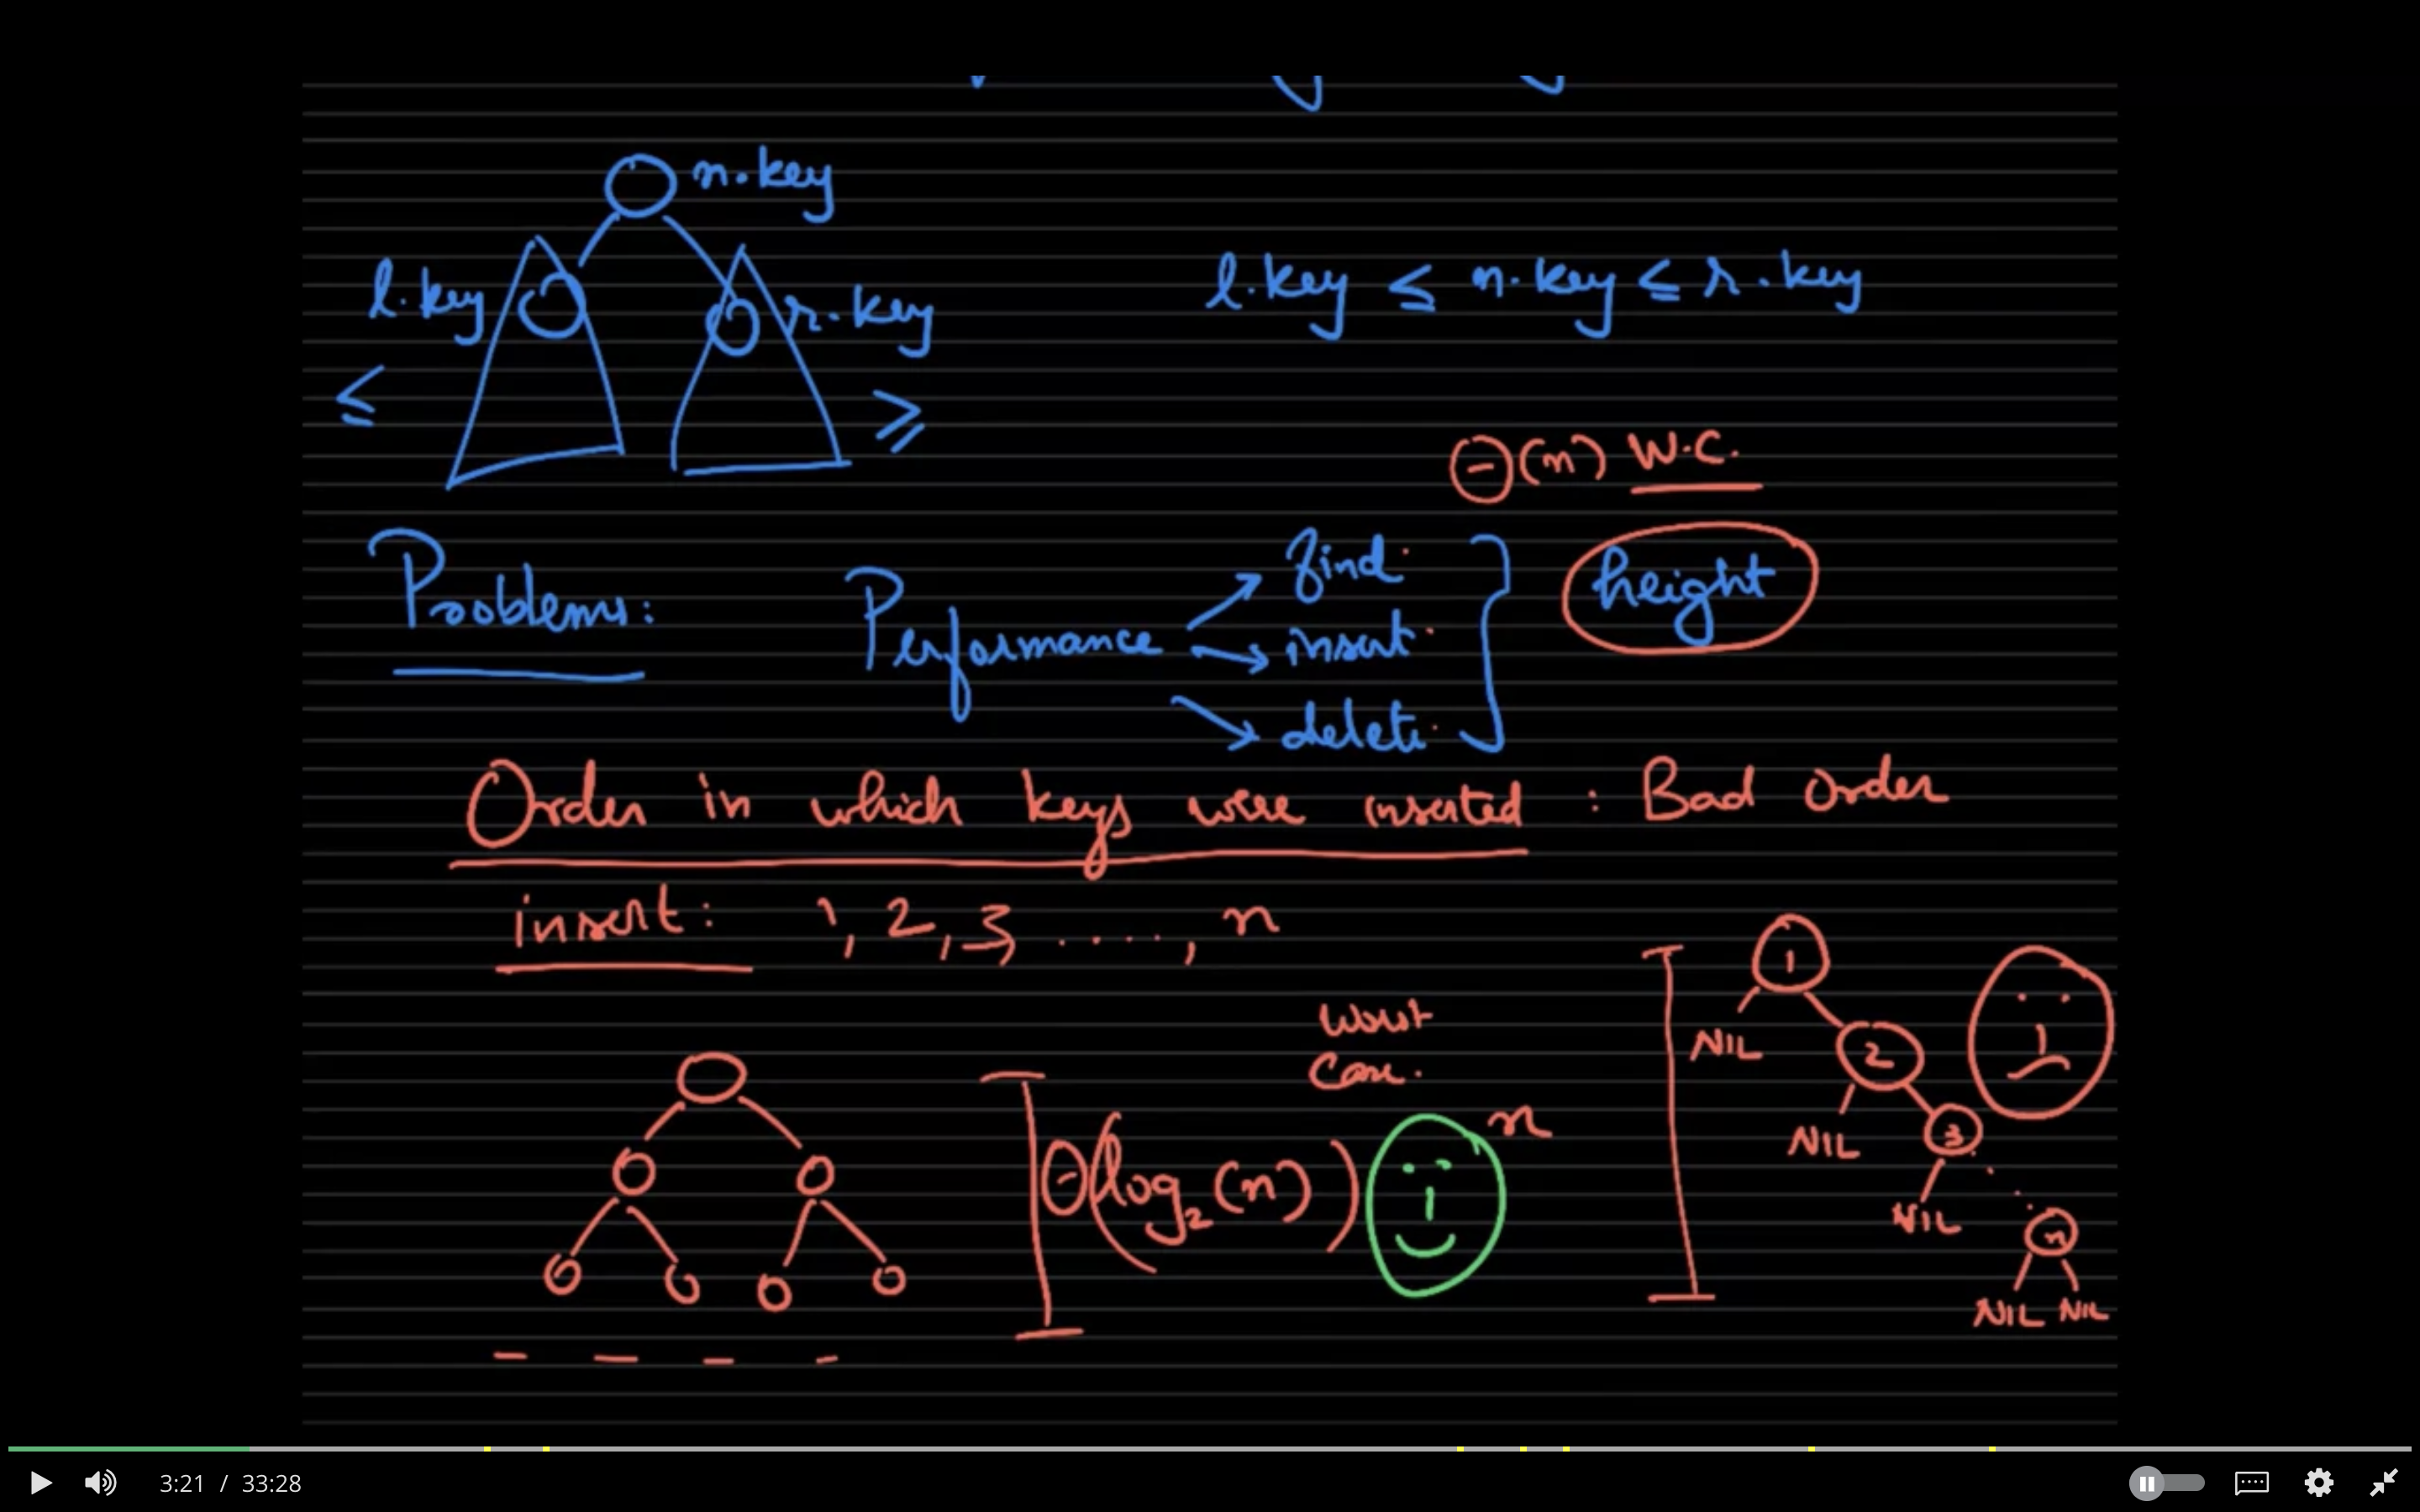 n.key
l.key
r.key
l.key ≤ n.key ≤ r.key
≤
≥
Θ(n) W.C.
Problems:
Performance
find
insert
delete
height
Order in which keys were inserted : Bad Order
insert: 1, 2, 3 ...., n
Worst
Case.
Θ(log₂(n))
n
1
NIL
2
NIL
3
NIL
n
NIL NIL
3:21 / 33:28